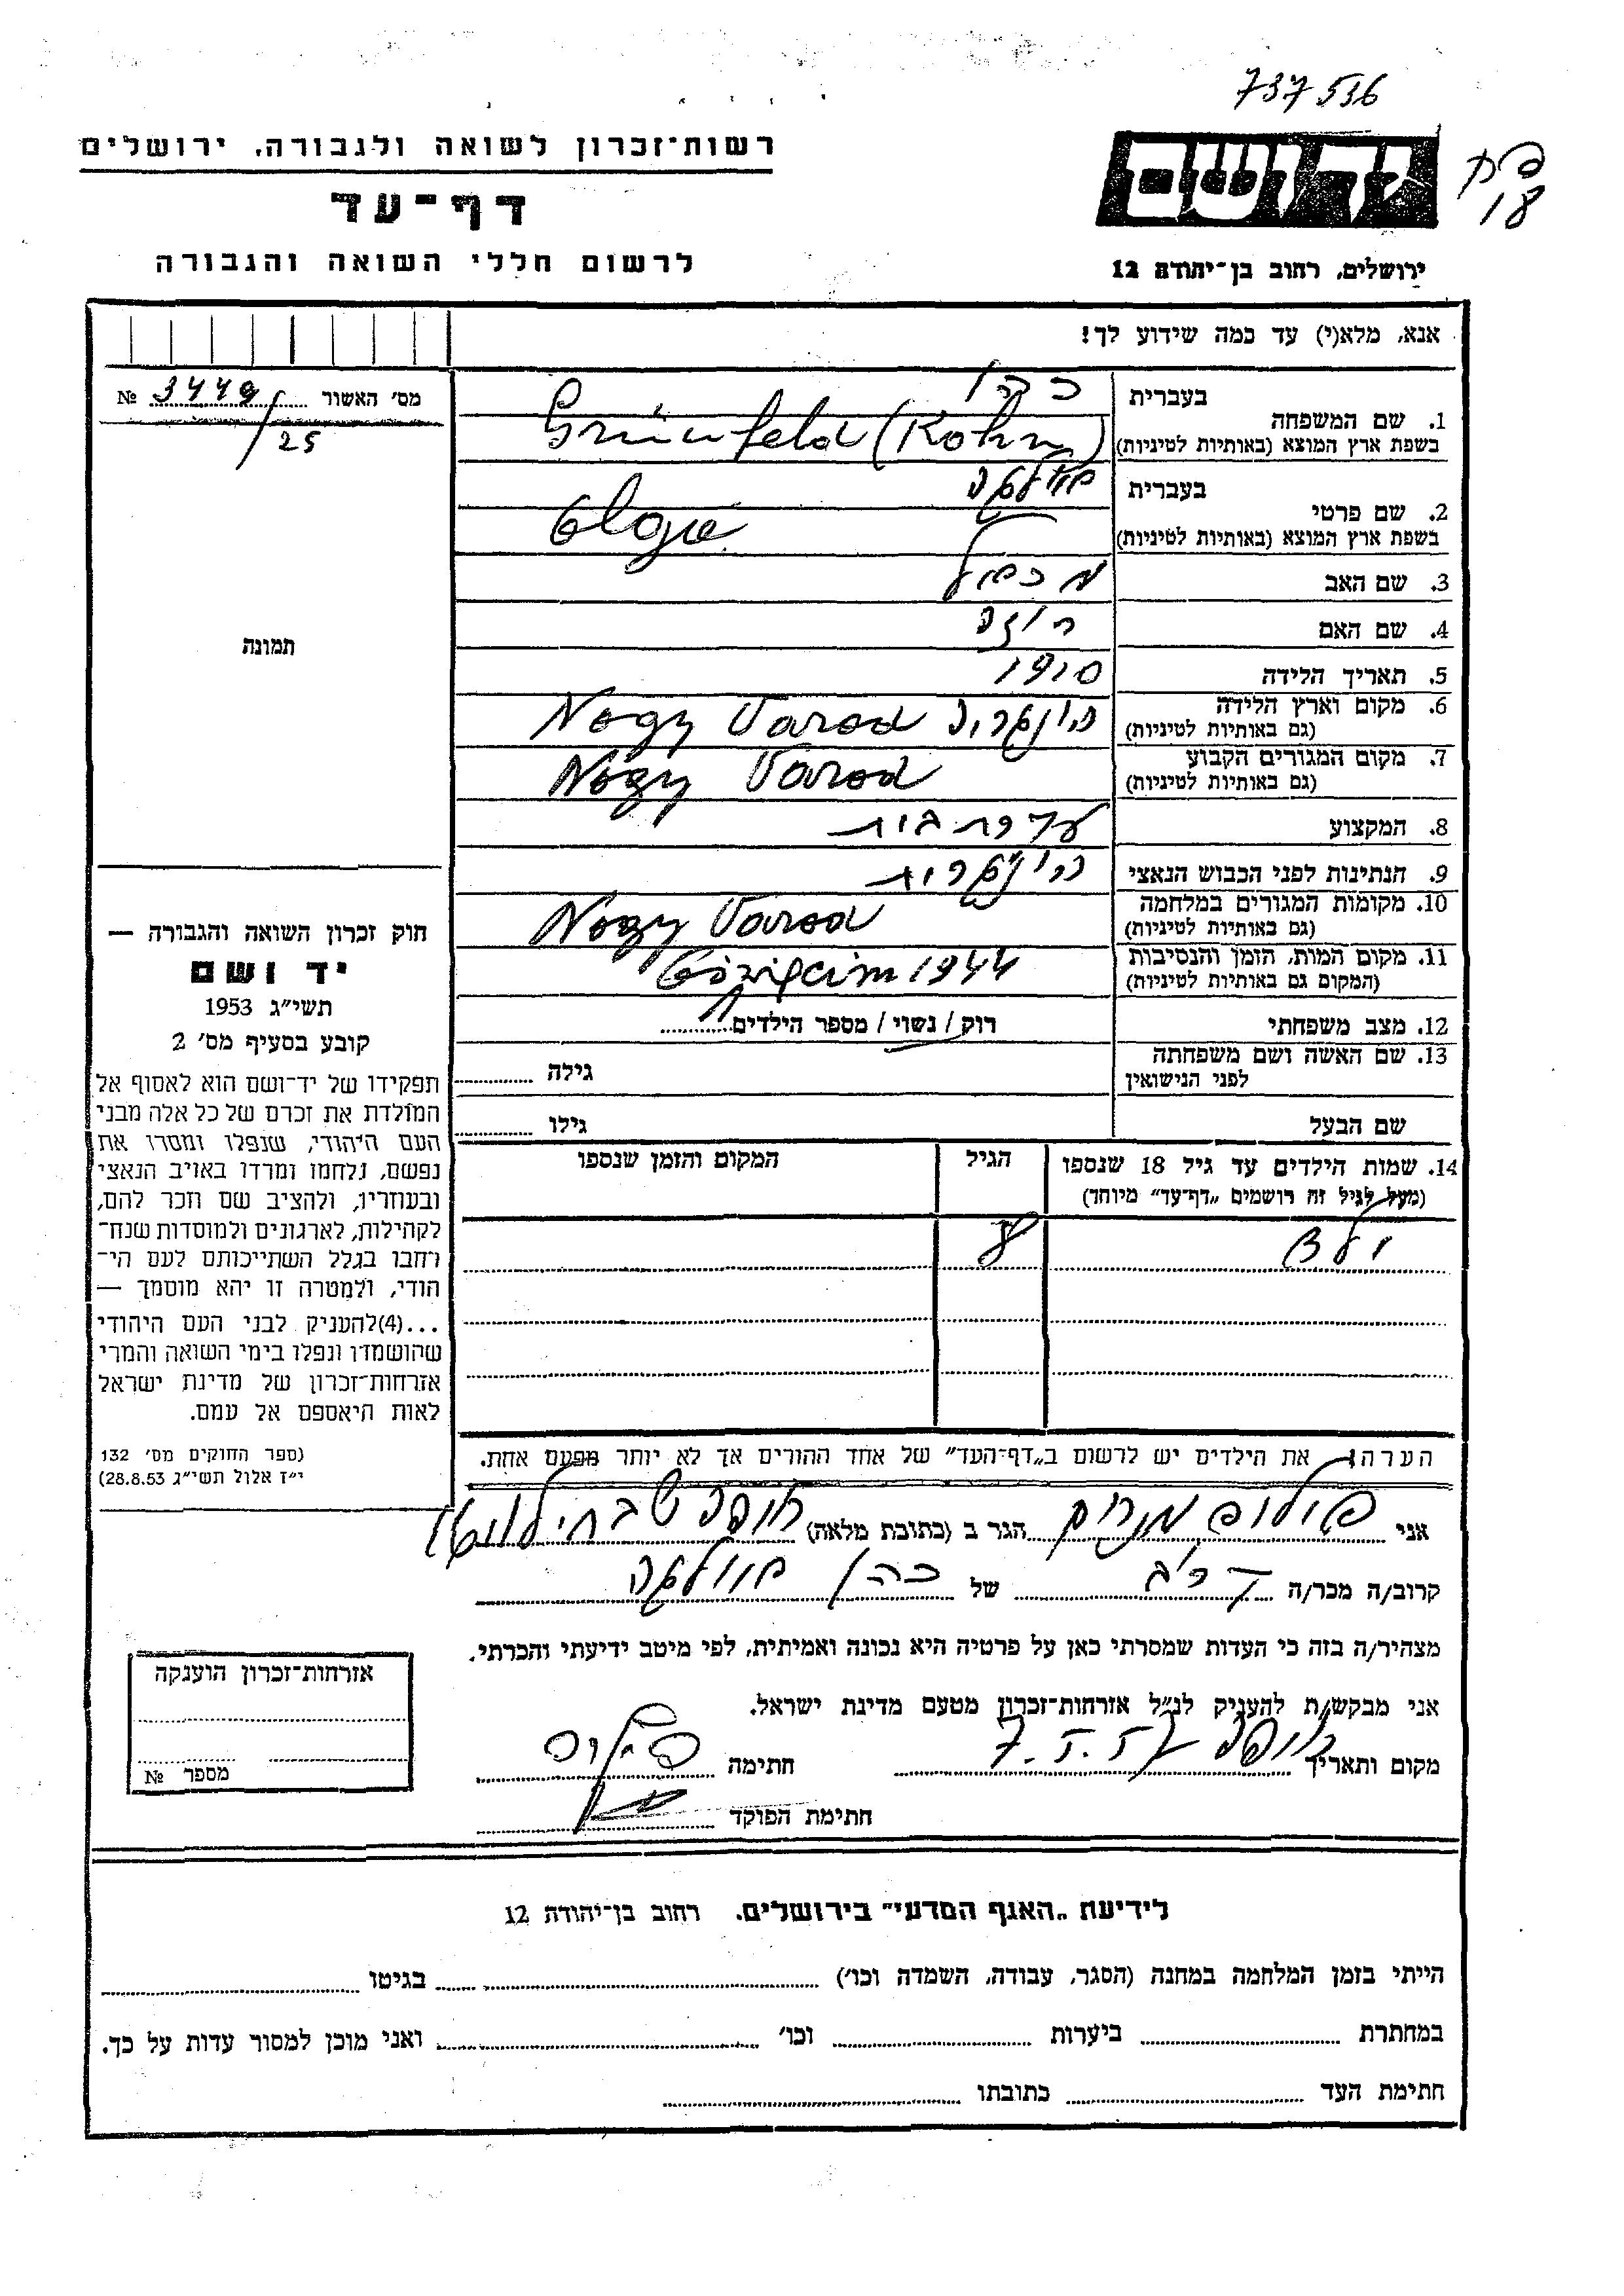 737536
רשות־זכרון לשואה ולגבורה, ירושלים
דף־עד
לרשום חללי השואה והגבורה
יד ושם
18
ירושלים, רחוב בן־יהודה 12
אנא, מלא(י) עד כמה שידוע לך!
מס׳ האשור № 3449
/25
תמונה
חוק זכרון השואה והגבורה —
יד ושם
תשי״ג 1953
קובע בסעיף מס׳ 2
תפקידו של יד־ושם הוא לאסוף אל
המולדת את זכרם של כל אלה מבני
העם היהודי, שנפלו ומסרו את
נפשם, נלחמו ומרדו באויב הנאצי
ובעוזריו, ולהציב שם וזכר להם,
לקהילות, לארגונים ולמוסדות שנח־
רבו בגלל השתייכותם לעם הי־
הודי, ולמטרה זו יהא מוסמך —
...(4)להעניק לבני העם היהודי
שהושמדו ונפלו בימי השואה והמרי
אזרחות־זכרון של מדינת ישראל
לאות היאספם אל עמם.
(ספר החוקים מס׳ 132
י״ז אלול תשי״ג 28.8.53)
בעברית כהן
1. שם המשפחה
בשפת ארץ המוצא (באותיות לטיניות) Grünfeld (Kohn)
בעברית
2. שם פרטי
בשפת ארץ המוצא (באותיות לטיניות) Olga
3. שם האב
4. שם האם רוזה
5. תאריך הלידה 1910
6. מקום וארץ הלידה הונגריה Nagy Varad
(גם באותיות לטיניות)
7. מקום המגורים הקבוע Nagy Varad
(גם באותיות לטיניות)
8. המקצוע עקרת בית
9. הנתינות לפני הכבוש הנאצי הונגרית
10. מקומות המגורים במלחמה Nagy Varad
(גם באותיות לטיניות)
11. מקום המות, הזמן והנסיבות 1944
(המקום גם באותיות לטיניות)
12. מצב משפחתי רווק / נשוי / מספר הילדים 1
13. שם האשה ושם משפחתה גילה
לפני הנישואין
שם הבעל גילו
14. שמות הילדים עד גיל 18 שנספו הגיל המקום והזמן שנספו
(מעל לגיל זה רושמים „דף־עד״ מיוחד)
ילד 8
הערה: את הילדים יש לרשום ב„דף־העד״ של אחד ההורים אך לא יותר מפעם אחת.
אני מרים הגר ב (כתובת מלאה) חיפה
קרוב/ה מכר/ה של כהן
מצהיר/ה בזה כי העדות שמסרתי כאן על פרטיה היא נכונה ואמיתית, לפי מיטב ידיעתי והכרתי.
אני מבקש/ת להעניק לנ״ל אזרחות־זכרון מטעם מדינת ישראל.
מקום ותאריך חיפה 7.5.57 חתימה
חתימת הפוקד
אזרחות־זכרון הוענקה
מספר №
לידיעת „האגף המדעי״ בירושלים. רחוב בן־יהודה 12
הייתי בזמן המלחמה במחנה (הסגר, עבודה, השמדה וכו׳) בגיטו
במחתרת ביערות וכו׳ ואני מוכן למסור עדות על כך.
חתימת העד כתובתו